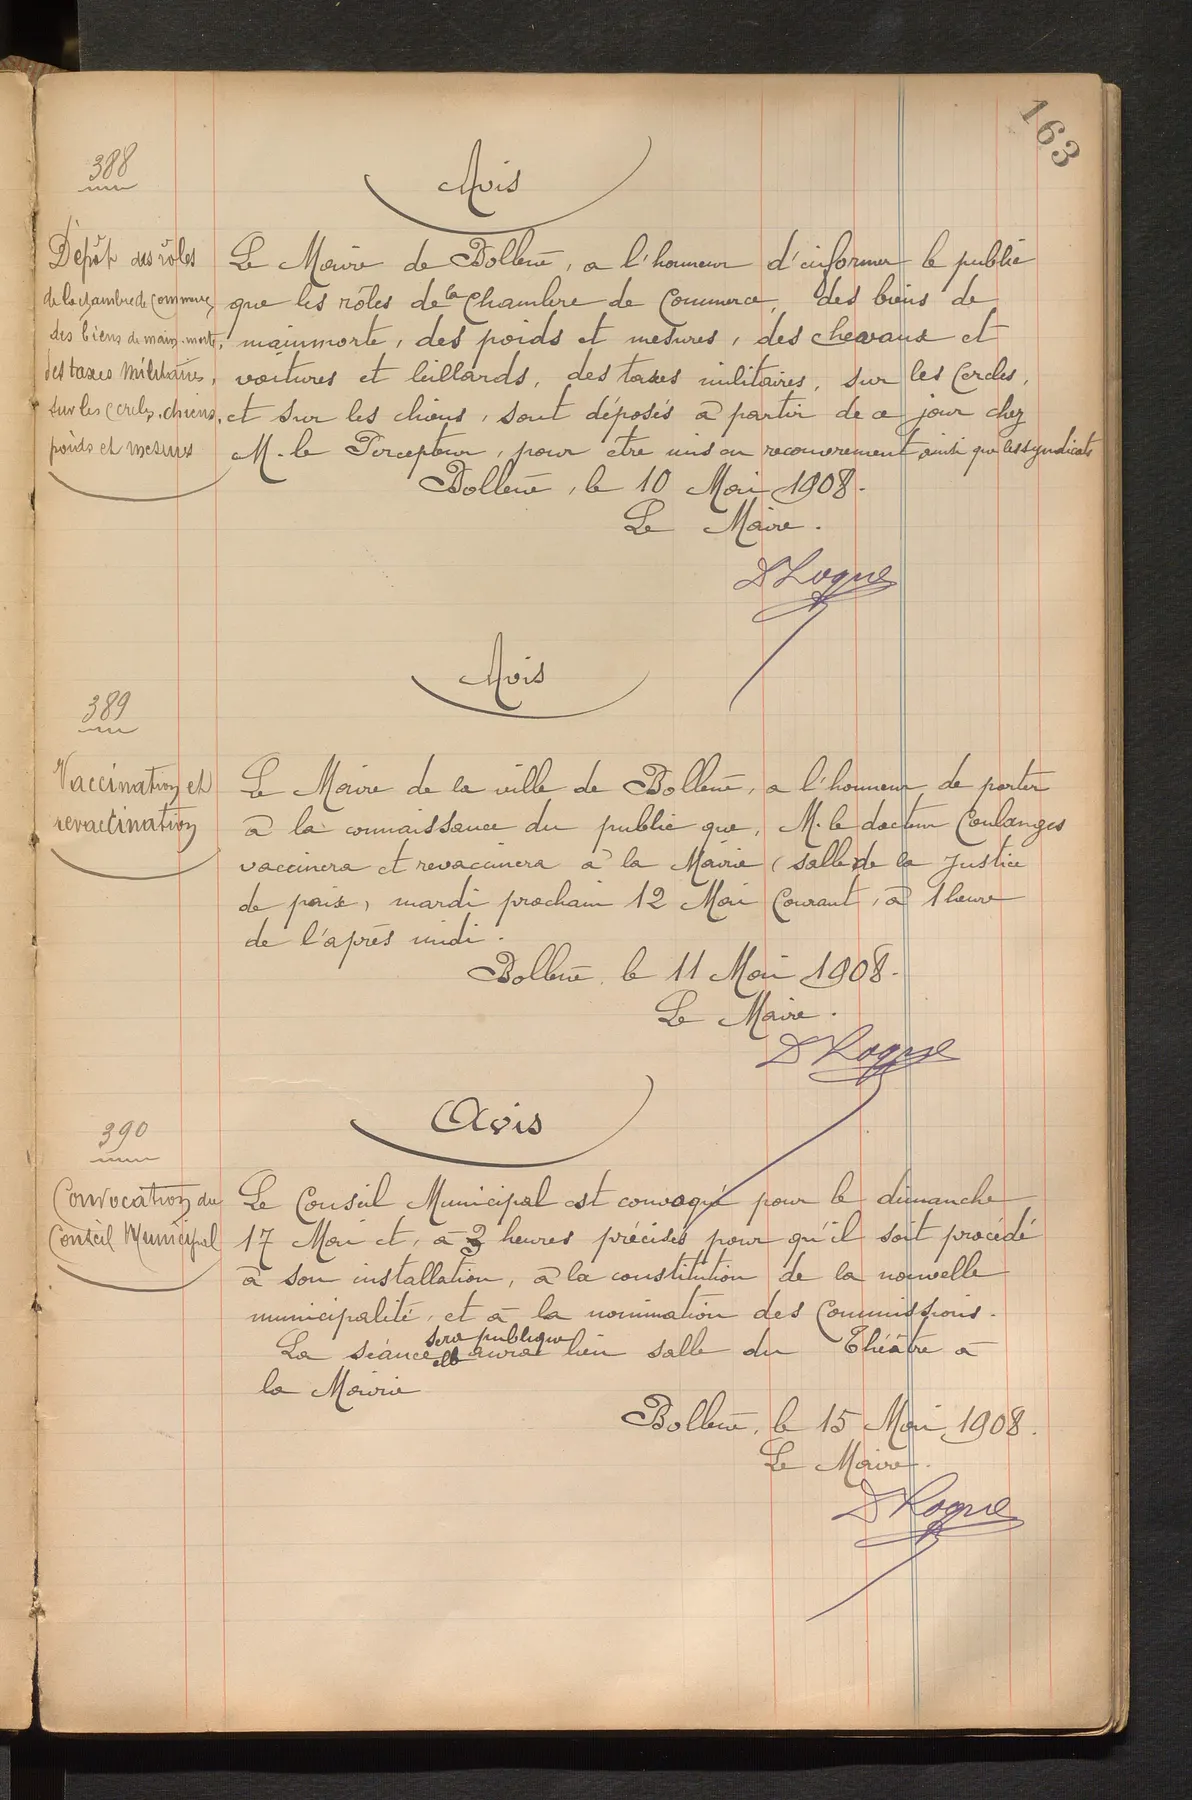 163
388
Avis
Dépôt des rôles
de la chambre de commerce,
des biens de main-morte,
des taxes militaires,
sur les cercles, chiens,
poids et mesures
Le Maire de Bollène, a l'honneur d'informer le public
que les rôles de la Chambre de Commerce, des biens de
mainmorte, des poids et mesures, des chevaux et
voitures et billards, des taxes militaires, sur les Cercles,
et sur les chiens, sont déposés à partir de ce jour chez
M. le Percepteur, pour être mis en recouvrement ainsi que les syndicats
Bollène, le 10 Mai 1908.
Le Maire.
389
Avis
Vaccination et
revaccination
Le Maire de la ville de Bollène, a l'honneur de porter
à la connaissance du public que, M. le docteur Coulanges
vaccinera et revaccinera à la Mairie (salle de la Justice
de paix, mardi prochain 12 Mai Courant, à 1 heure
de l'après midi.
Bollène, le 11 Mai 1908.
Le Maire.
390
Avis
Convocation du
Conseil Municipal
Le Conseil Municipal est convoqué pour le dimanche
17 Mai ct, à 3 heures précises pour qu'il soit procédé
à son installation, à la constitution de la nouvelle
municipalité, et à la nomination des Commissions.
La séance sera publique elle aura lieu salle du Théâtre à
la Mairie
Bollène, le 15 Mai 1908.
Le Maire.